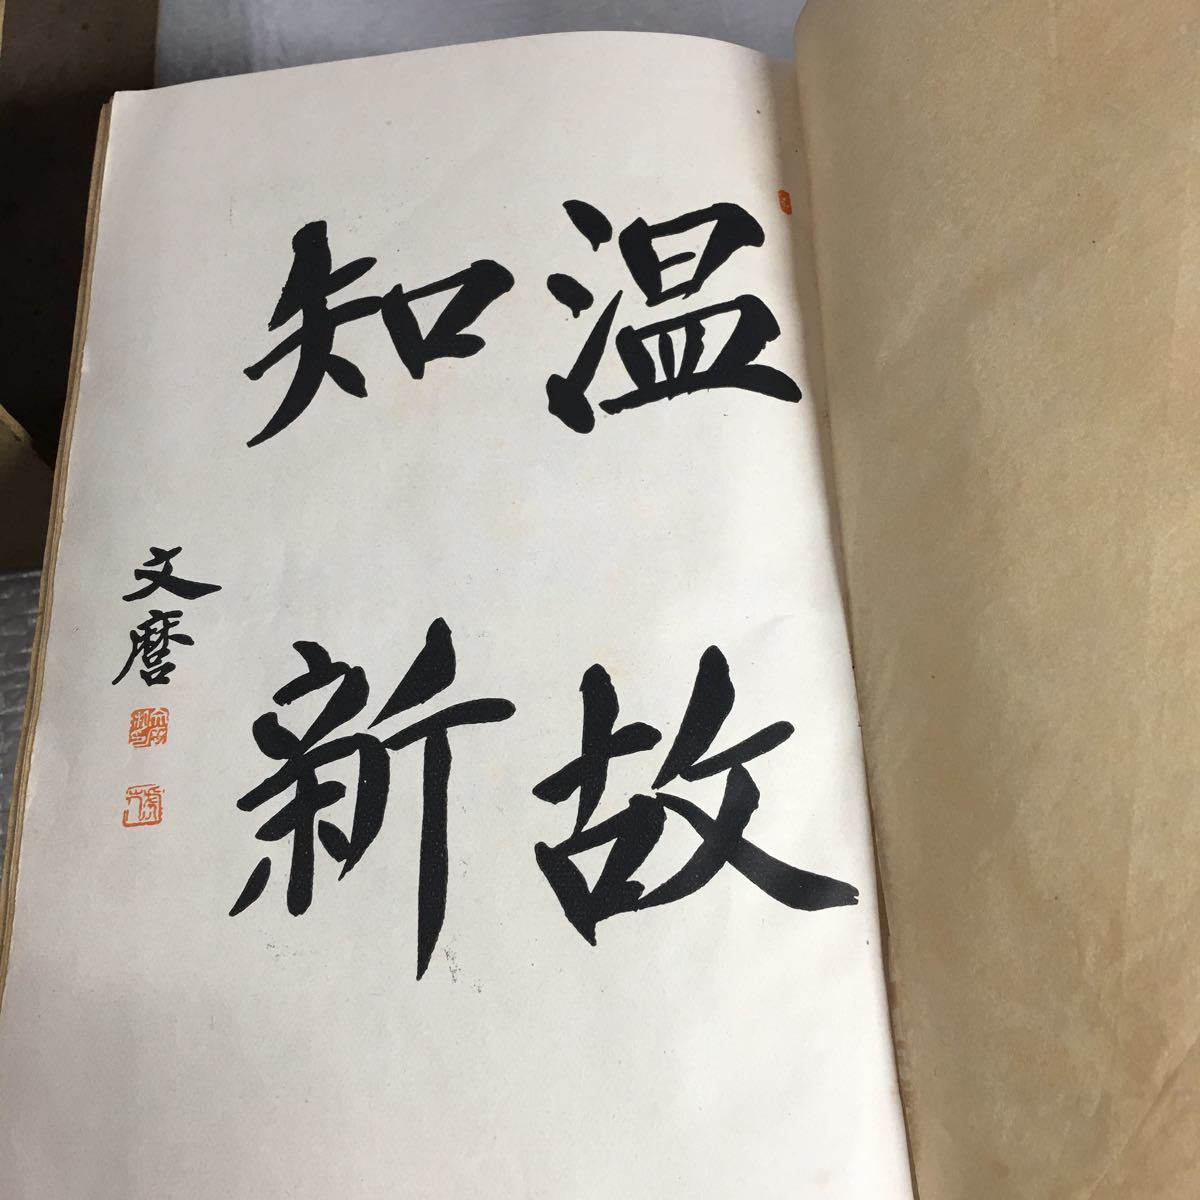 温故
知新
文麿